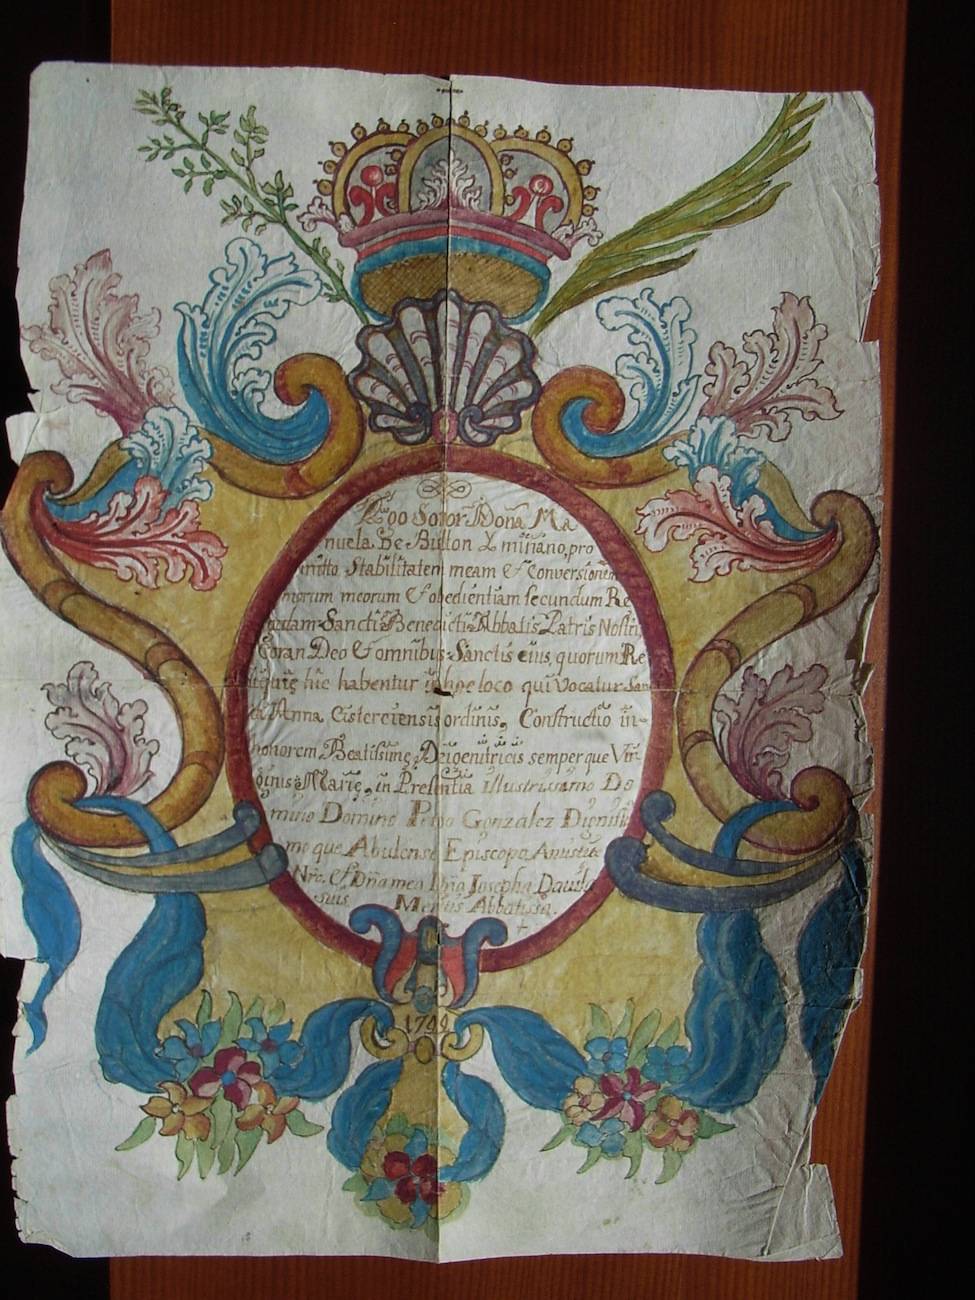 Ego Soror Doña Ma
nuela De Button Y miñano, pro
mitto Stabilitatem meam & Conversionem
morum meorum & obedientiam secundum Re
gulam Sancti Benedicti Abbatis Patris Nostri,
Coran Deo & omnibus Sanctis eius, quorum Re
liquię hic habentur in hoc loco qui Vocatur San
ta Anna Cisterciensis ordinis, Constructio in
honorem Beatissimę Deigenitricis semperque Vir
ginis Marię, in Presentia illustrissimo Do
mino Domino Petro Gonzalez Dignissi
mo que Abulense Episcopo Antistite
Nrõ. & Dña mea Dña Josepha Davila
suis Meritis Abbatissa.